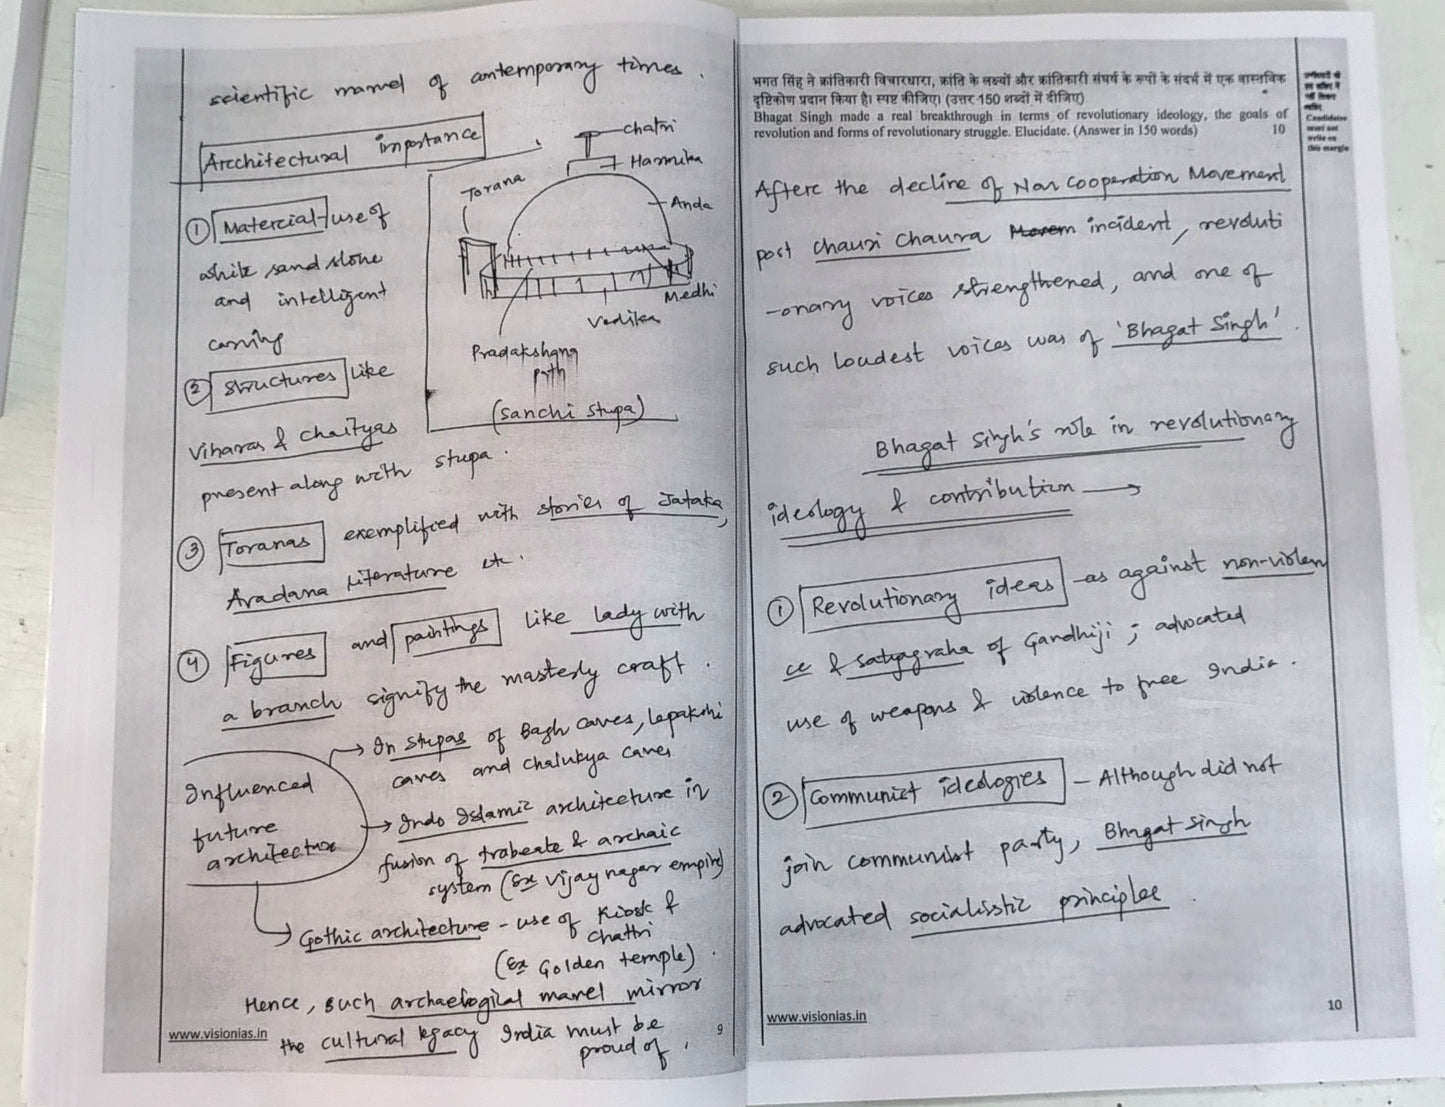 scientific marvel of contemporary times.
Arcchitectural importance
① Matercial - use of
white sand stone
and intelligent
carving
② structures like
viharas & chaityas
present along with stupa.
chatri
Harmika
Torana
Anda
Medhi
Vedika
Pradakshana
path
(sanchi stupa)
③ Toranas exemplified with stories of Jataka,
Avadana literature etc.
④ Figures and paintings like lady with
a branch signify the masterly craft.
Influenced
future
architecture
→ In stupas of Bagh caves, lepakshi
caves and chalukya caves
→ Indo Islamic architecture in
fusion of trabeate & archaic
system (Ex vijaynagar empire)
→ Gothic architecture - use of Kiosk &
chattri
(Ex Golden temple).
Hence, such archaelogical marvel mirror
the cultural legacy India must be
proud of.
www.visionias.in
9
भगत सिंह ने क्रांतिकारी विचारधारा, क्रांति के लक्ष्यों और क्रांतिकारी संघर्ष के रूपों के संदर्भ में एक वास्तविक
दृष्टिकोण प्रदान किया है। स्पष्ट कीजिए। (उत्तर 150 शब्दों में दीजिए)
Bhagat Singh made a real breakthrough in terms of revolutionary ideology, the goals of
revolution and forms of revolutionary struggle. Elucidate. (Answer in 150 words) 10
Candidates
must not
write on
this margin
Afterc the decline of Non Cooperation Movement
post chauri chaura incident, revoluti
-onary voices strengthened, and one of
such loudest voices was of 'Bhagat Singh'.
Bhagat Singh's role in revolutionary
ideology & contribution →
① Revolutionary ideas - as against non-violen
ce & satyagraha of Gandhiji ; advocated
use of weapons & violence to free India.
② Communist ideologies - Although did not
join communist party, Bhagat Singh
advocated socialisstic principles.
www.visionias.in
10